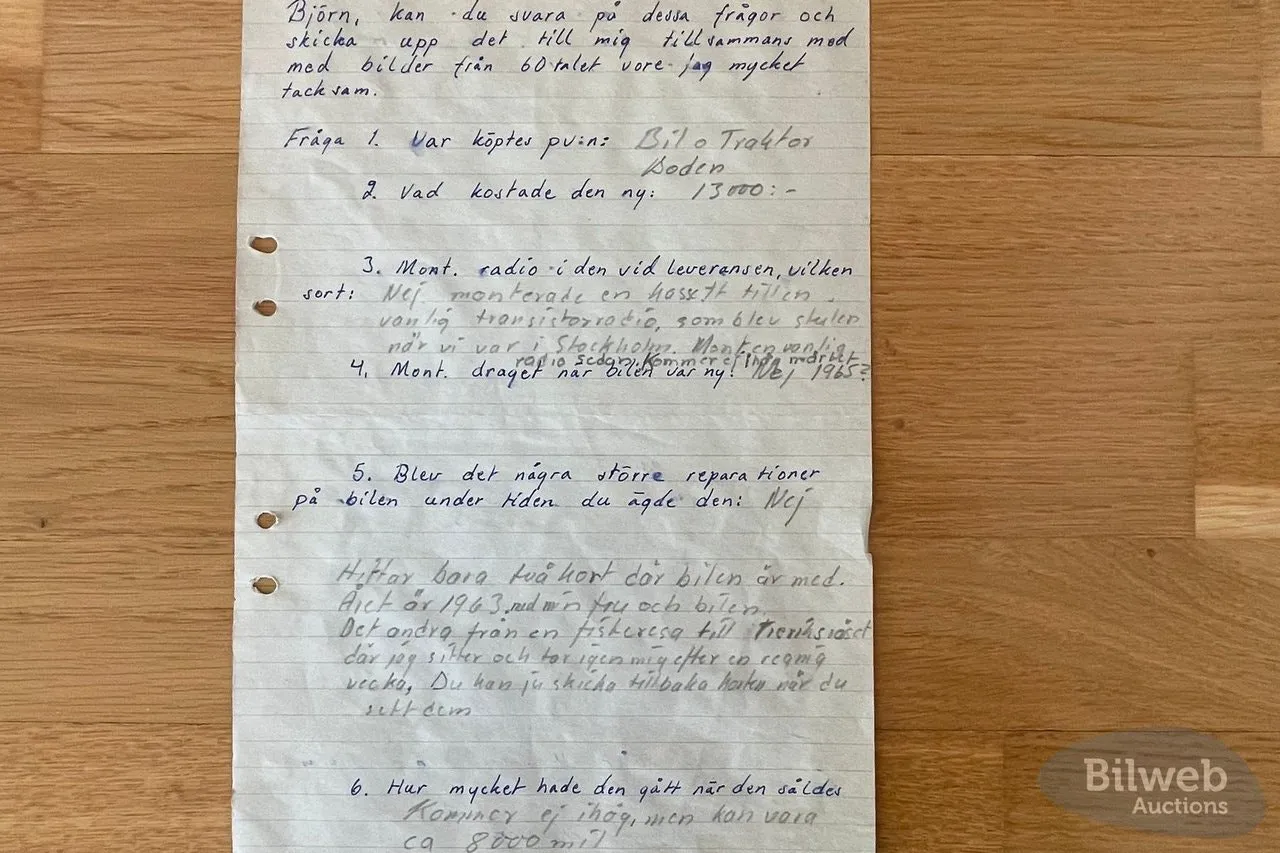 Björn, kan du svara på dessa frågor och
skicka upp det till mig tillsammans med
med bilder från 60talet vore jag mycket
tacksam.
Fråga 1. Var köptes pv:n: Bil o Traktor
Boden
2. Vad kostade den ny: 13000:-
3. Mont. radio i den vid leveransen, vilken
sort: Nej. monterade en kassett till en
vanlig transistorradio, som blev stulen
när vi var i Stockholm. Mont en vanlig
radio sedan. Kommer ej ihåg märket
4. Mont. draget när bilen var ny: Nej 1965?
5. Blev det några större reparationer
på bilen under tiden du ägde den: Nej
Hittar bara två kort där bilen är med.
Året är 1963. med min fru och bilen.
Det andra från en fiskeresa till Treriksröset
där jag sitter och tar igen mig efter en regnig
vecka. Du kan ju skicka tillbaka korten när du
sett dem
6. Hur mycket hade den gått när den såldes
Kommer ej ihåg, men kan vara
ca 8000 mil
Bilweb
Auctions